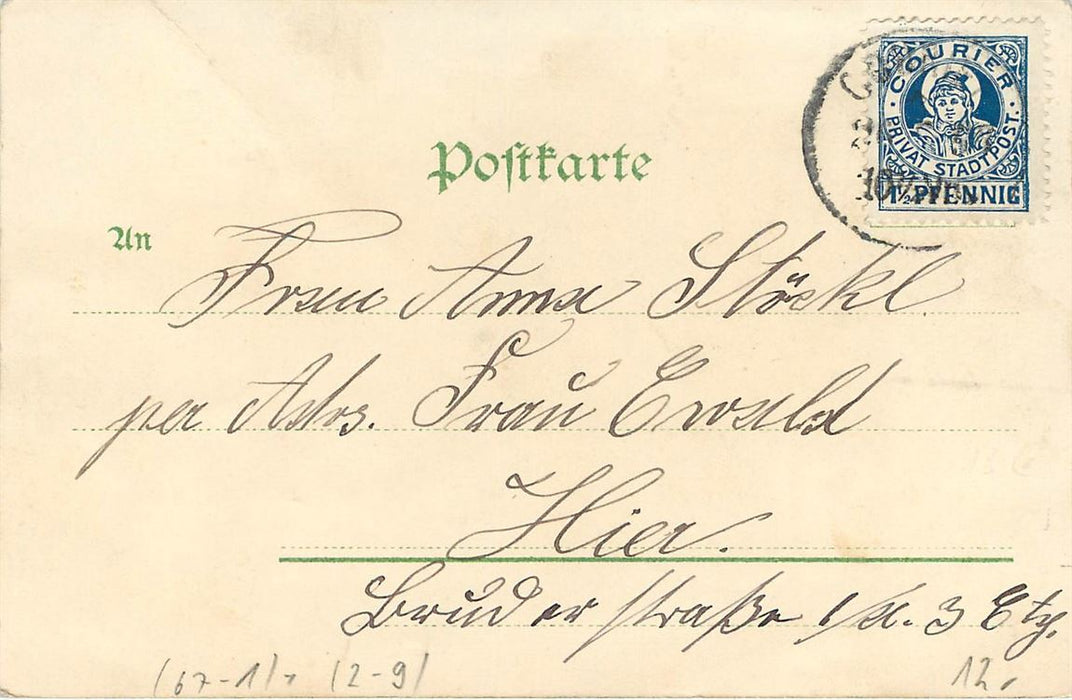 COURIER
PRIVAT STADTPOST.
1½ PFENNIG
Postkarte
An
Frau Anna Stöckl
per Adrs. Frau Ewald
Hier.
Bruderstraße 3 Etg.
(67-1), (2-9)
12.